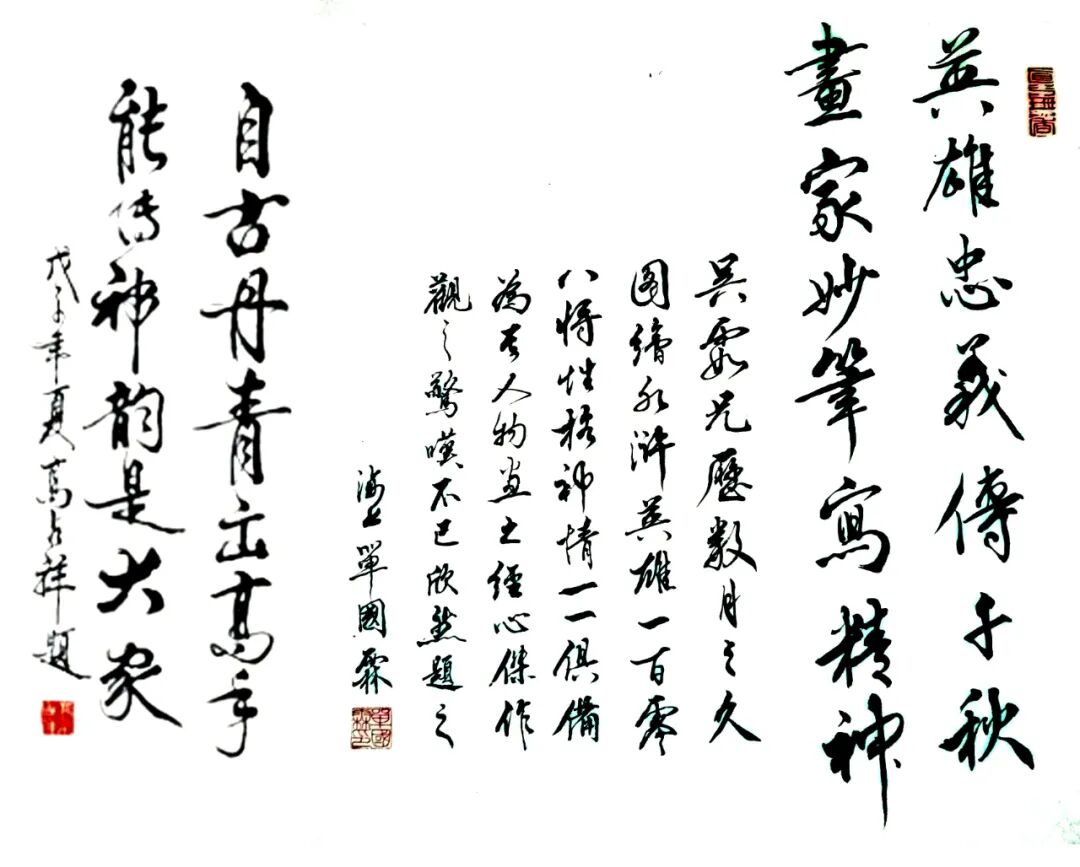 英雄忠義傳千秋
畫家妙筆寫精神
吴霞兄歷數月之久
图繪水滸英雄一百零
八將性格神情一一俱備
為人物画之經心傑作
觀之驚嘆不已欣然題之
海上單國霖
單國霖印
自古丹青出高手
能传神韵是大家
戊子年夏高占祥題